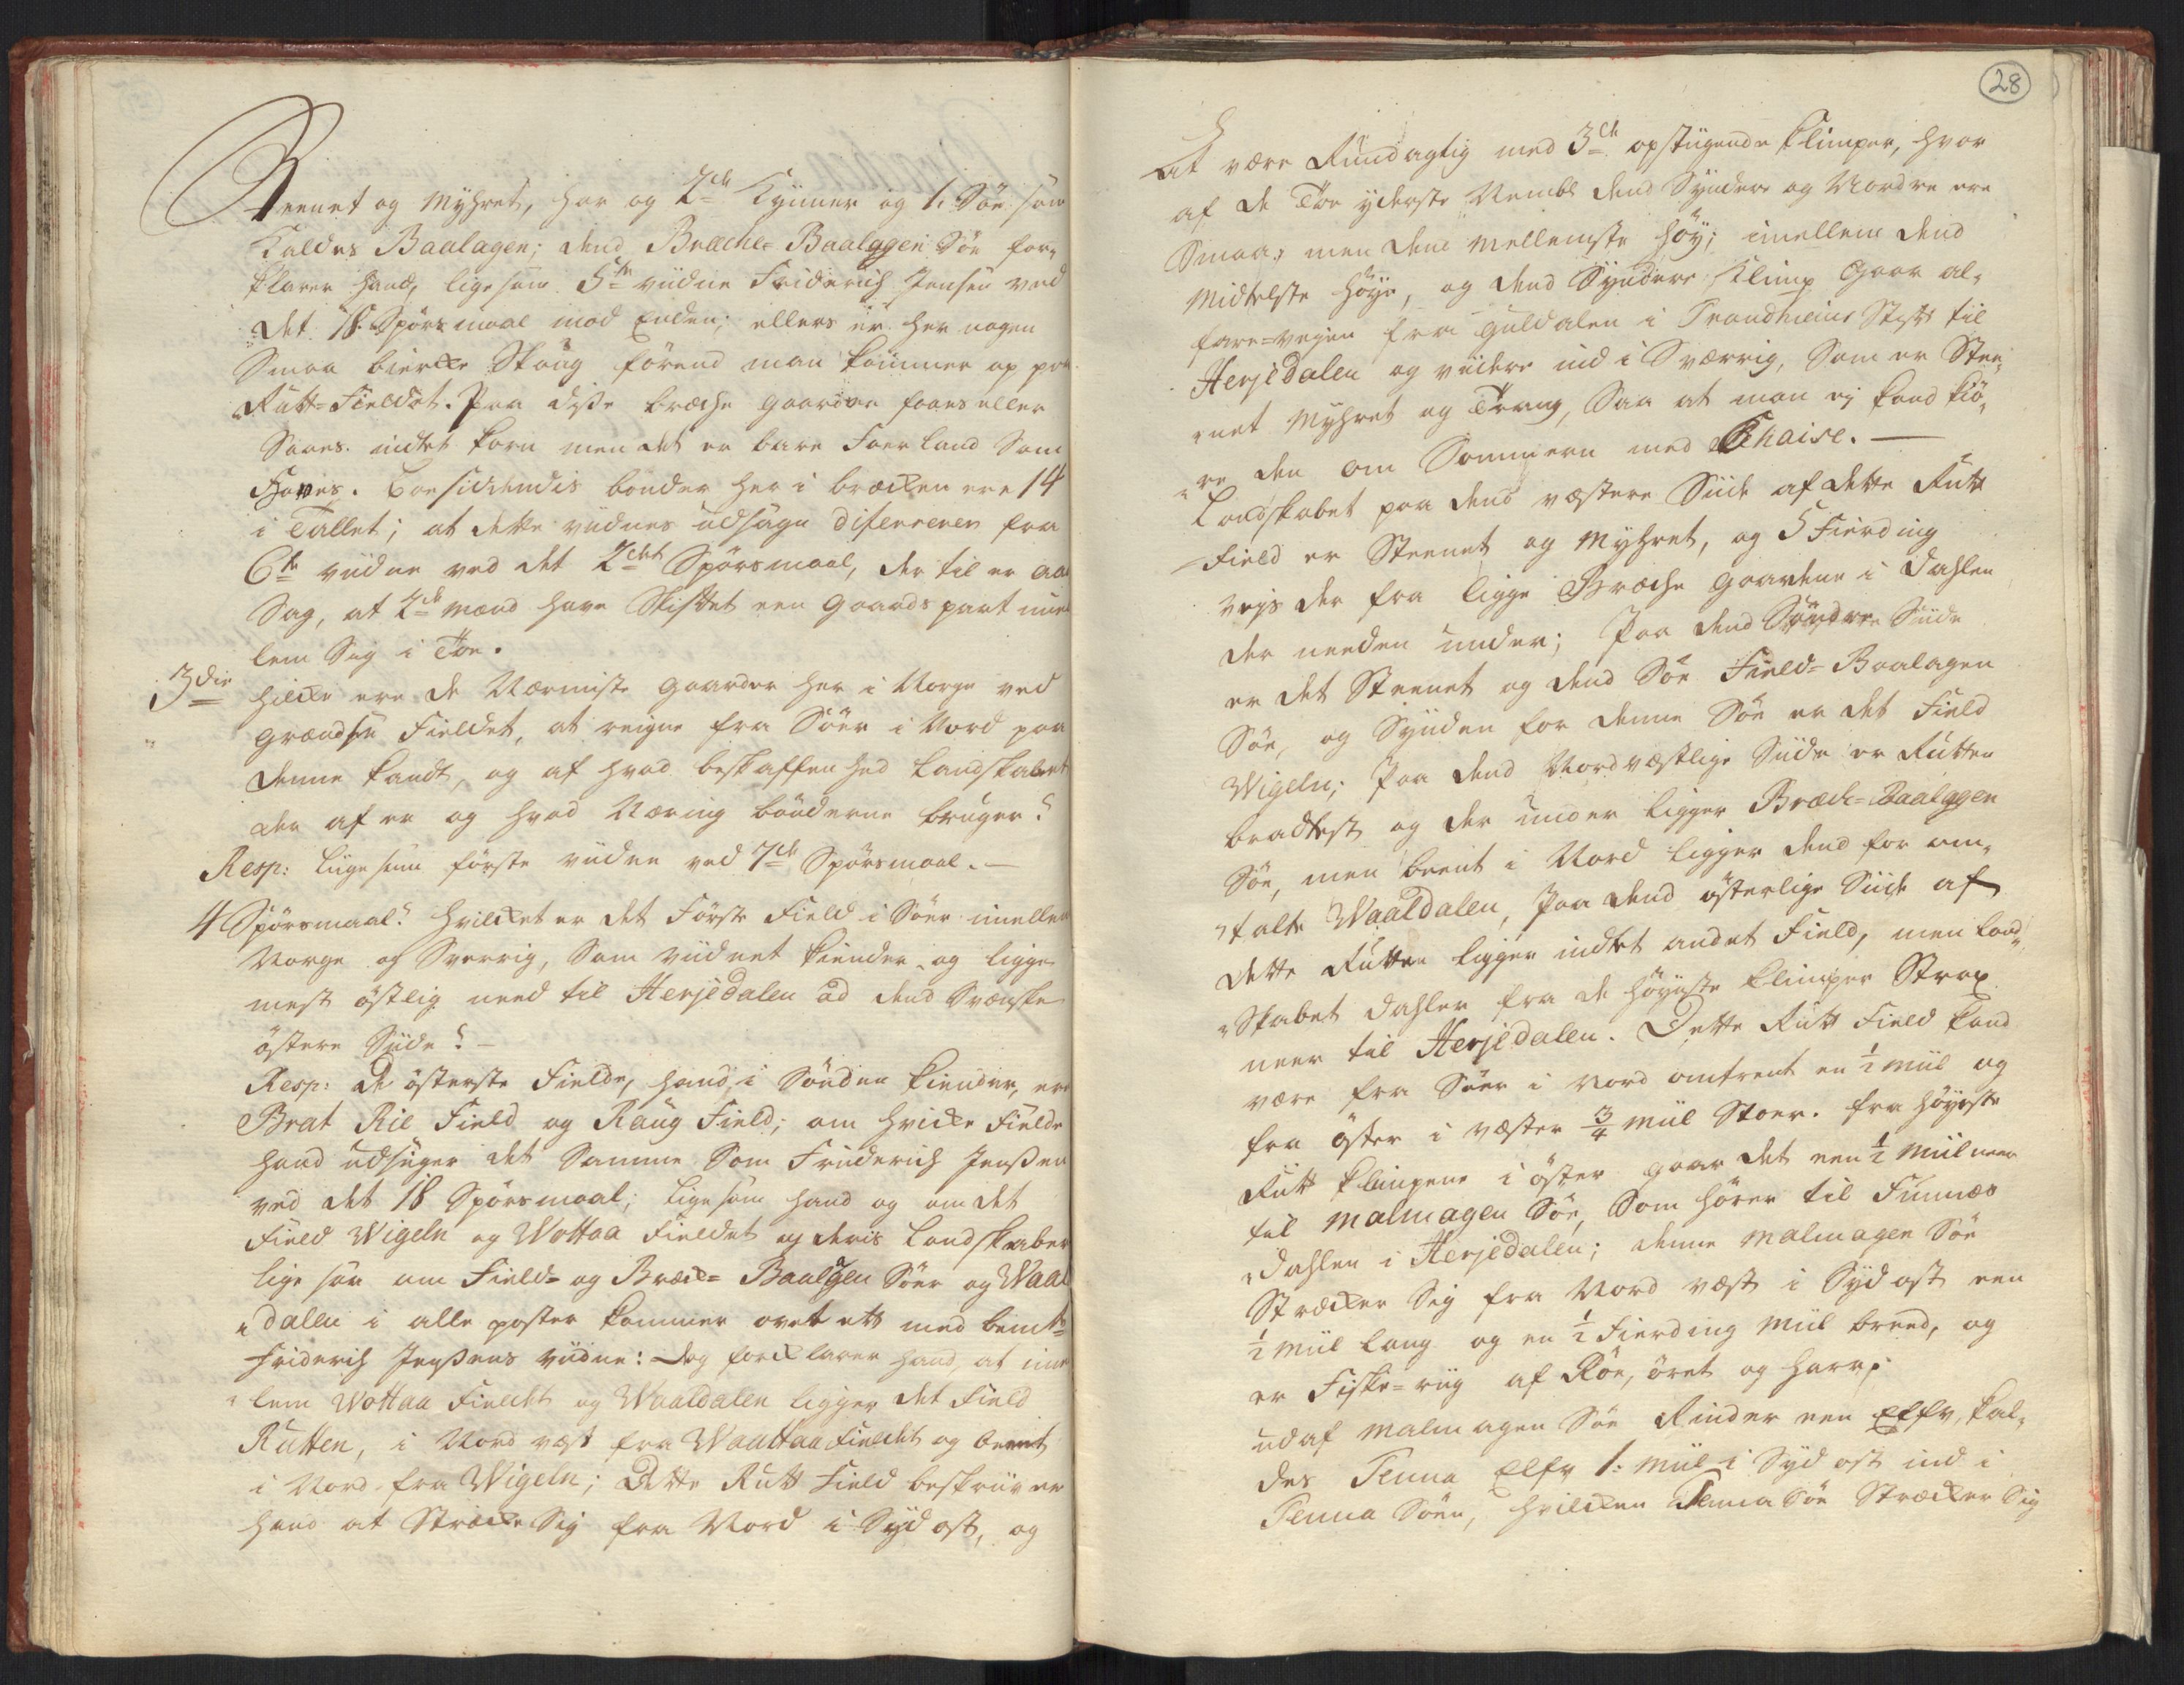 Steenet og Myhret, har og 2de Kyiner og 1. Söe som
Kaldes Baalagen; dend Bræche= Baalagen Söe for„
klarer hand, ligesom 5te vidne Friderich Jensen ved
det 18. Spörsmaal mod Enden; ellers er her nogen
Smaa bircke Skoug förend man kommer op paa
Rutt=Fieldet. Paa disse bræche gaardene saaes eller
Saaes. intet korn men det er bare Foer land Som
Haves. Boesiddendis bönder her i bræcken ere 14
i Tallet; at dette vidnes udsagn diferrerer fra
6te vidne ved det 2det Spörsmaal, der til er aar
Sag, at 2de mænd have Skiftet een gaards part imel
lem Sig i Toe.
3die hvilcke ere de Nærmiste gaarder her i Norge ved
grændse Fieldet, at reigne fra Söer i Nord paa
denne kandt, og af hvad beskaffenhed landskabet
der af er og hvad Næring bönderne bruger?
Resp: ligesom förste vidne ved 7de Spörsmaal.—
4 Spörsmaal? hvilcket er det Förste Field i Söer imellem
Norge og Sverrig, Som vidnet kiender og ligge
mest östlig need til Herjedalen ad dend Svænske
östere Side?—
Resp: de österste Fielde, hand i Sönden kiender, ere
Brat Rie Field og Raug Field; om hvilcke Fielde
hand udsiger det Samme Som Friderich Jenßen
ved det 18 Spörsmaal; ligesom hand og om det
Field Wigeln og Wottaa Fieldet og deris Landskaber
lige saa om Field= og Bræck= Baalagen Söer og Waal
„dalen i alle poster kommer overet med bemte
Friderich Jenßens vidne: Dog forklarer hand, at imel
„lem Wottaa Fieldet og Waaldalen ligger det Field
Rutten, i Nord væst fra Waattaa Fieldet og beent
i Nord fra Wigeln; Dette Rutt Field beskriver
hand at Strække Sig fra Nord i Syd ost, og

28
At være Rundagtig med 3de opstiigende klimper, hvor
af de Toe yderste Nembl dend Syndere og Nordre ere
Smaa, men dend mellemste höy; imellem dend
Midtelste höye, og dend Syndere Klimp gaar al„
fare=veyen fra Guldalen i Trondhiems Stift til
Herjedalen og viidere ind i Sværrig, Som er Stee„
„net Myhret og Trang, Saa at man ej kand kiö„
„re den om Sommeren med Chaise.—
Landskabet paa dend væstere Side af dette Rutt
Field er Steenet og Myhret, og 5 Fierding
veys der fra ligge Bræche gaardene i dahlen
der needen under; Paa dend Söndre Side
er det Steenet og dend Söe Field= Baalagen
Söe, og Synden for denne Söe er det Field
Wigeln; Paa dend Nordvæstlige Side er Rutten
bradtest og der under ligger Bræck=Baalagen
Söe, men beent i Nord ligger dend for om„
„talte Waaldalen, Paa dend österlige Side af
dette Rutten ligger intet andet Field, men land„
„Skabet dahler fra de höyeste klimper Strax
neer til Herjedalen. Dette Rutt Field kand
være fra Söer i Nord omtrent en ½ miil og
fra öster i væster ¾ miil Stoer. fra höyeste
Rutt klimpene i öster gaar det een ½ Miil neer
til Malmagen Söe, Som hörer til Funnæs
„dahlen i Herjedalen; denne Malmagen Söe
Strækker Sig fra Nord væst i Syd ost een
½ miil lang og en ½ Fierding miil breed, og
er Fiske=riig af Röe, öret og harr.
ud af Malmagen Söe Rinder een Elfv, kal„
des Tenna Elfv 1: Miil i Syd ost ind i
Tenna Söen, hvilcken Tenna Söe Strækker Sig